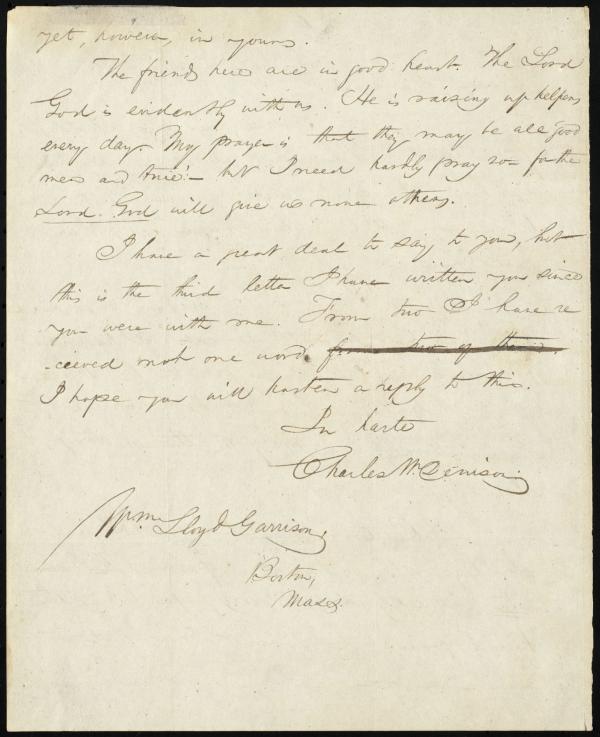 yet, however, in yours.
The friends here are in good heart. The Lord
God is evidently with us. He is raising up helpers
every day. My prayer is that they may be all good
men and true:- but I need hardly pray so- for the
Lord God will give us none others.
I have a great deal to say to you, but
this is the third letter I have written you since
you were with me. From two I have re
-ceived not one word from two of them.
I hope you will hasten a reply to this.
In haste
Charles W. Denison
Wm Lloyd Garrison,
Boston,
Mass.